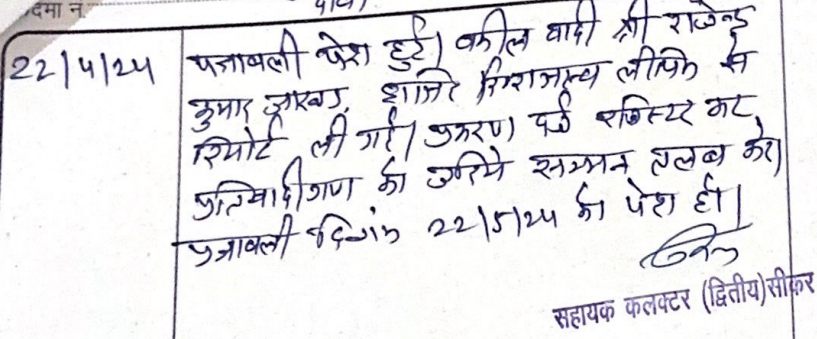 दमा न.
22/4/24
पत्रावली पेश हुई। वकील वादी श्री राजेन्द्र
कुमार झाखड़ हाजिर लीपिक से
रिपोर्ट ली गई। प्रकरण दर्ज रजिस्टर कर
प्रतिवादीगण को जरिये सम्मन तलब करे।
पत्रावली दिनांक 22/5/24 को पेश हो।
सहायक कलक्टर (द्वितीय) सीकर